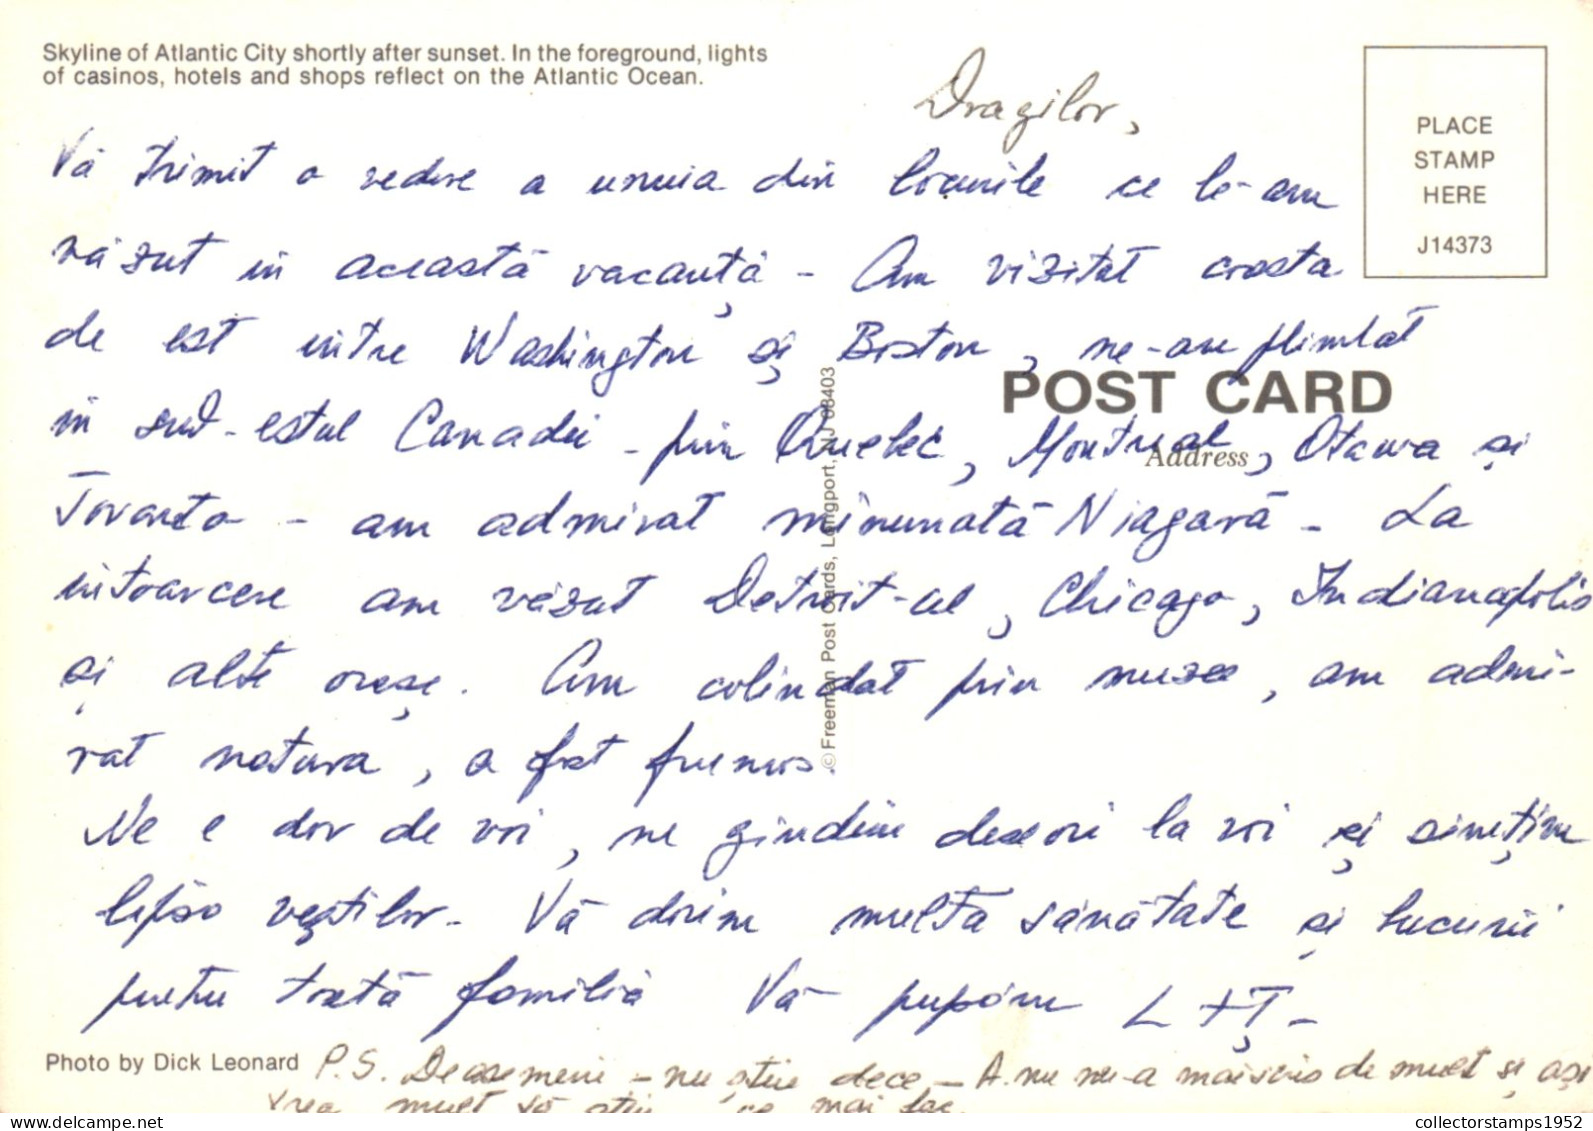 Skyline of Atlantic City shortly after sunset. In the foreground, lights
of casinos, hotels and shops reflect on the Atlantic Ocean.
Dragilor,
PLACE
STAMP
HERE
J14373
Vă trimit o vedere a unuia din locurile ce le-am
văzut in această vacanță - Am vizitat coasta
de est intre Washington și Boston, ne-am plimbat
POST CARD
in sud-estul Canadei - prin Quebec, Montreal, Otawa și
Address
Toronto - am admirat minunată Niagară - La
intoarcere am văzut Detroit-ul, Chicago, Indianapolis
și alte orașe. Am colindat prin muzee, am admi-
rat natura, a fost frumos.
Ne e dor de voi, ne gindim deseori la voi și simțim
lipsa veștilor - Vă dorim multa sănătate și bucurii
pentru toată familia Vă pupăm L+Ț-
© Freeman Post Cards, Longport, NJ 08403
Photo by Dick Leonard
P.S. Deasemeni - nu știu dece - A. nu ne-a mai scris de mult și ași
vrea mult să știu ce mai fac.
collectorstamps1952